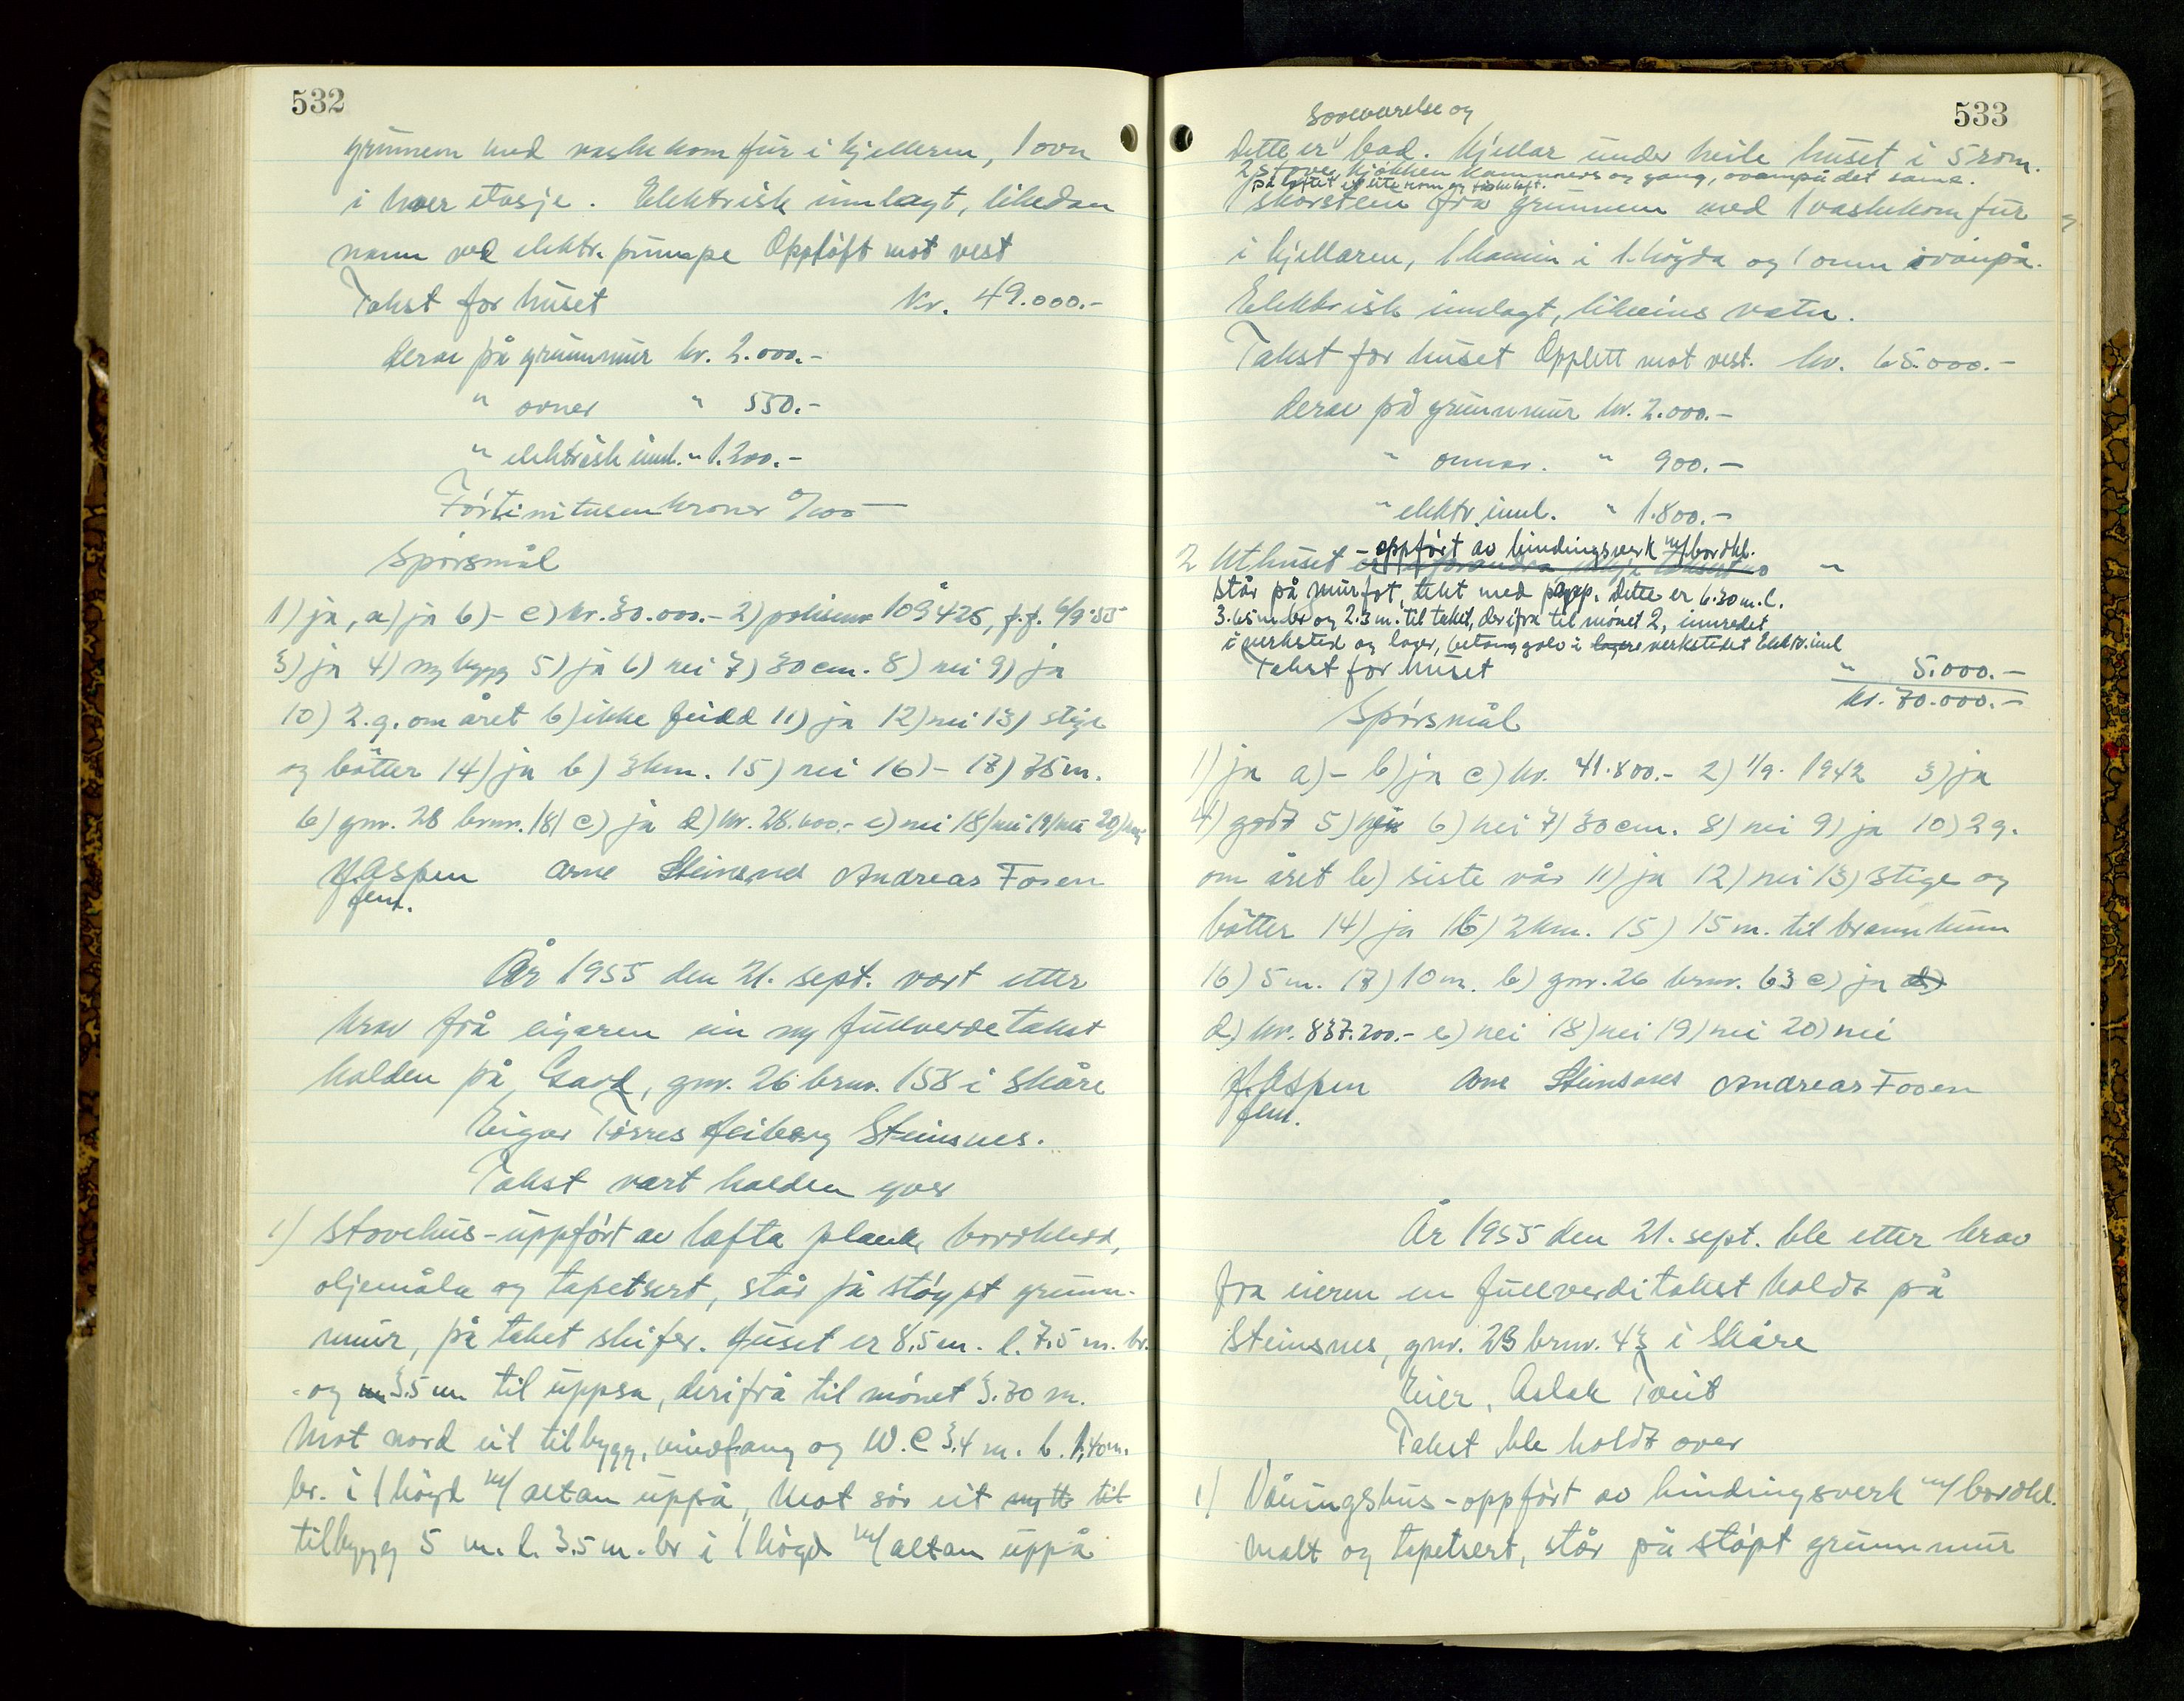 532
grunnen med vaskekomfur i kjelleren, 1 ovn
i hver etasje. Elektrisk innlagt, likedan
vann ved elektr. pumpe Oppløft mot vest
Takst for huset kr. 49.000.-
derav på grunnmur kr. 2.000.-
" ovner " 550.-
" elektrisk innl. " 1.200.-
Førtinitusen kroner 0/100
Spørsmål
1) ja, a) ja b) - c) kr. 30.000.- 2) polisenr 109425, f.f. 6/9-55
3) ja 4) nybygg 5) ja 6) nei 7) 30 cm. 8) nei 9) ja
10) 2.g. om året b) ikke feidd 11) ja 12) nei 13) stige
og bøtter 14) ja b) 3 km. 15) nei 16) - 17) 75 m.
b) gnr. 28 brnr. 181 c) ja d) kr. 28.600.- e) nei 18) nei 19) nei 20) nei
H. Aspen Arne Steinsnes Andreas Fosen
fem.
År 1955 den 21. sept. vart etter
krav frå eigaren ein ny fullverdetakst
halden på Gard, gnr. 26 brnr. 158 i Skåre
Eigar Torres Heiberg Steinsnes.
Takst vart halden over
1) Stovehus - uppført av lafta plank bordkledd,
oljemåla og tapetsert, står på støypt grunn-
mur, på taket skifer. Huset er 8,5 m. l. 7,5 m. br.
og 3.5 m til uppsa, derifrå til mønet 3.30 m.
Mot nord eit tilbygg, vindfang og W.C 3,4 m. l. 1,40 m.
br. i 1 høgd m/ altan uppå, Mot sør eit nytt til
tilbygg 5 m. l. 3.5 m. br i 1 høgd m/ altan uppå
533
Soveværelse og
Dette er bad. Kjellar under heile huset i 5 rom.
2 stover kjøkken kammers og gang, ovanpå det same.
på loftet et lite rom og tørkeloft.
1 skorstein fra grunnen med 1 vaskekomfur
i kjellaren, 1 kamin i 1. høgda og 1 omn ovanpå.
Elektrisk innlagt, likeeins vatn.
Takst for huset Opplett mot vest. kr. 65.000.-
derav på grunnmur kr. 2.000.-
" omnar. " 900.-
" elektr. innl. " 1.800.-
2 Uthuset - oppført av bindingsverk m/ bordkl. "
står på murfot, tekt med papp. Dette er 6.30 m. l.
3.65 m br og 2.3 m. til taket, derifra til mønet 2, innredet
i verksted og lager, betonggolv i lagere verkstedet Elektr. innl
Takst for huset " 5.000.-
kr. 70.000.-
Spørsmål
1) ja a) - b) ja c) kr. 41.800.- 2) 1/9. 1942 3) ja
4) godt 5) nei 6) nei 7) 30 cm. 8) nei 9) ja 10) 2 g.
om året b) siste vår 11) ja 12) nei 13) stige og
bøtter 14) ja b) 2 km. 15) 15 m. til brannkum
16) 5 m. 17) 10 m. b) gnr. 26 brnr. 63 c) ja d)
d) kr. 837.200.- e) nei 18) nei 19) nei 20) nei
H. Aspen Arne Steinsnes Andreas Fosen
fem.
År 1955 den 21. sept. ble etter krav
fra eieren en fullverditakst holdt på
Steinsnes, gnr. 23 brnr. 43 i Skåre
Eier, Aslak Tveit
Takst ble holdt over
1) Våningshus - oppført av bindingsverk m/ bordkl.
malt og tapetsert, står på støpt grunnmur